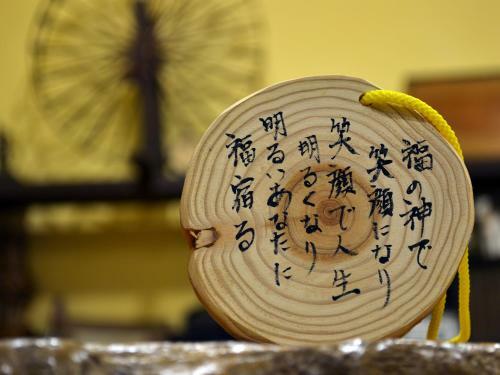 福の神で
笑顔になり
笑顔で人生
明るくなり
明るいあなたに
福宿る